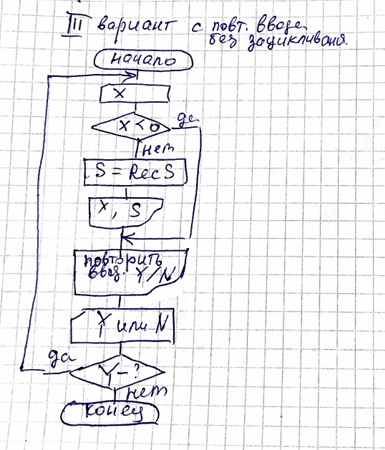 III вариант с повт. ввода
без зацикливания.
начало
X
X<0 да
нет
S = RecS
X, S
повторить
ввод. Y/N
Y или N
да
Y-?
нет
конец